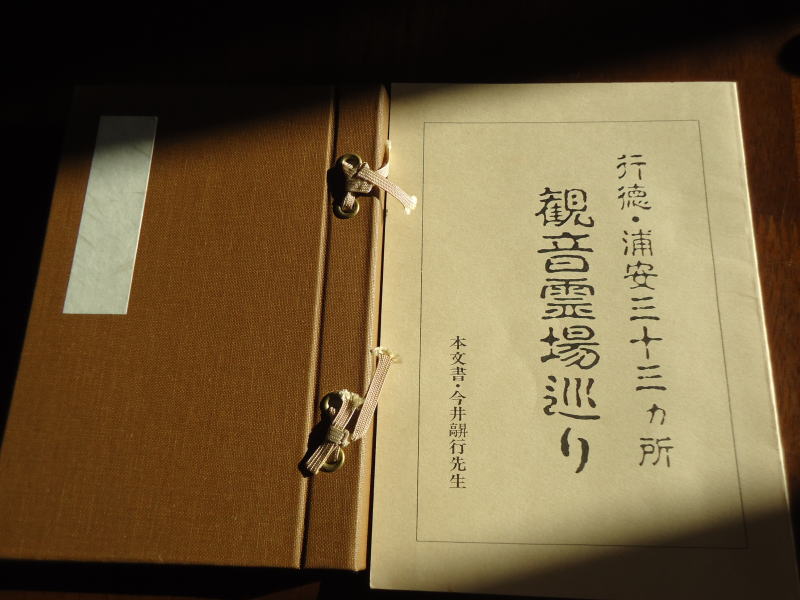 行徳・浦安三十三カ所
観音霊場巡り
本文書・今井訮行先生